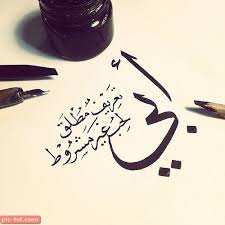 أبي
تعريف مُطلق
لحب غير مشروط
pic-hd.com